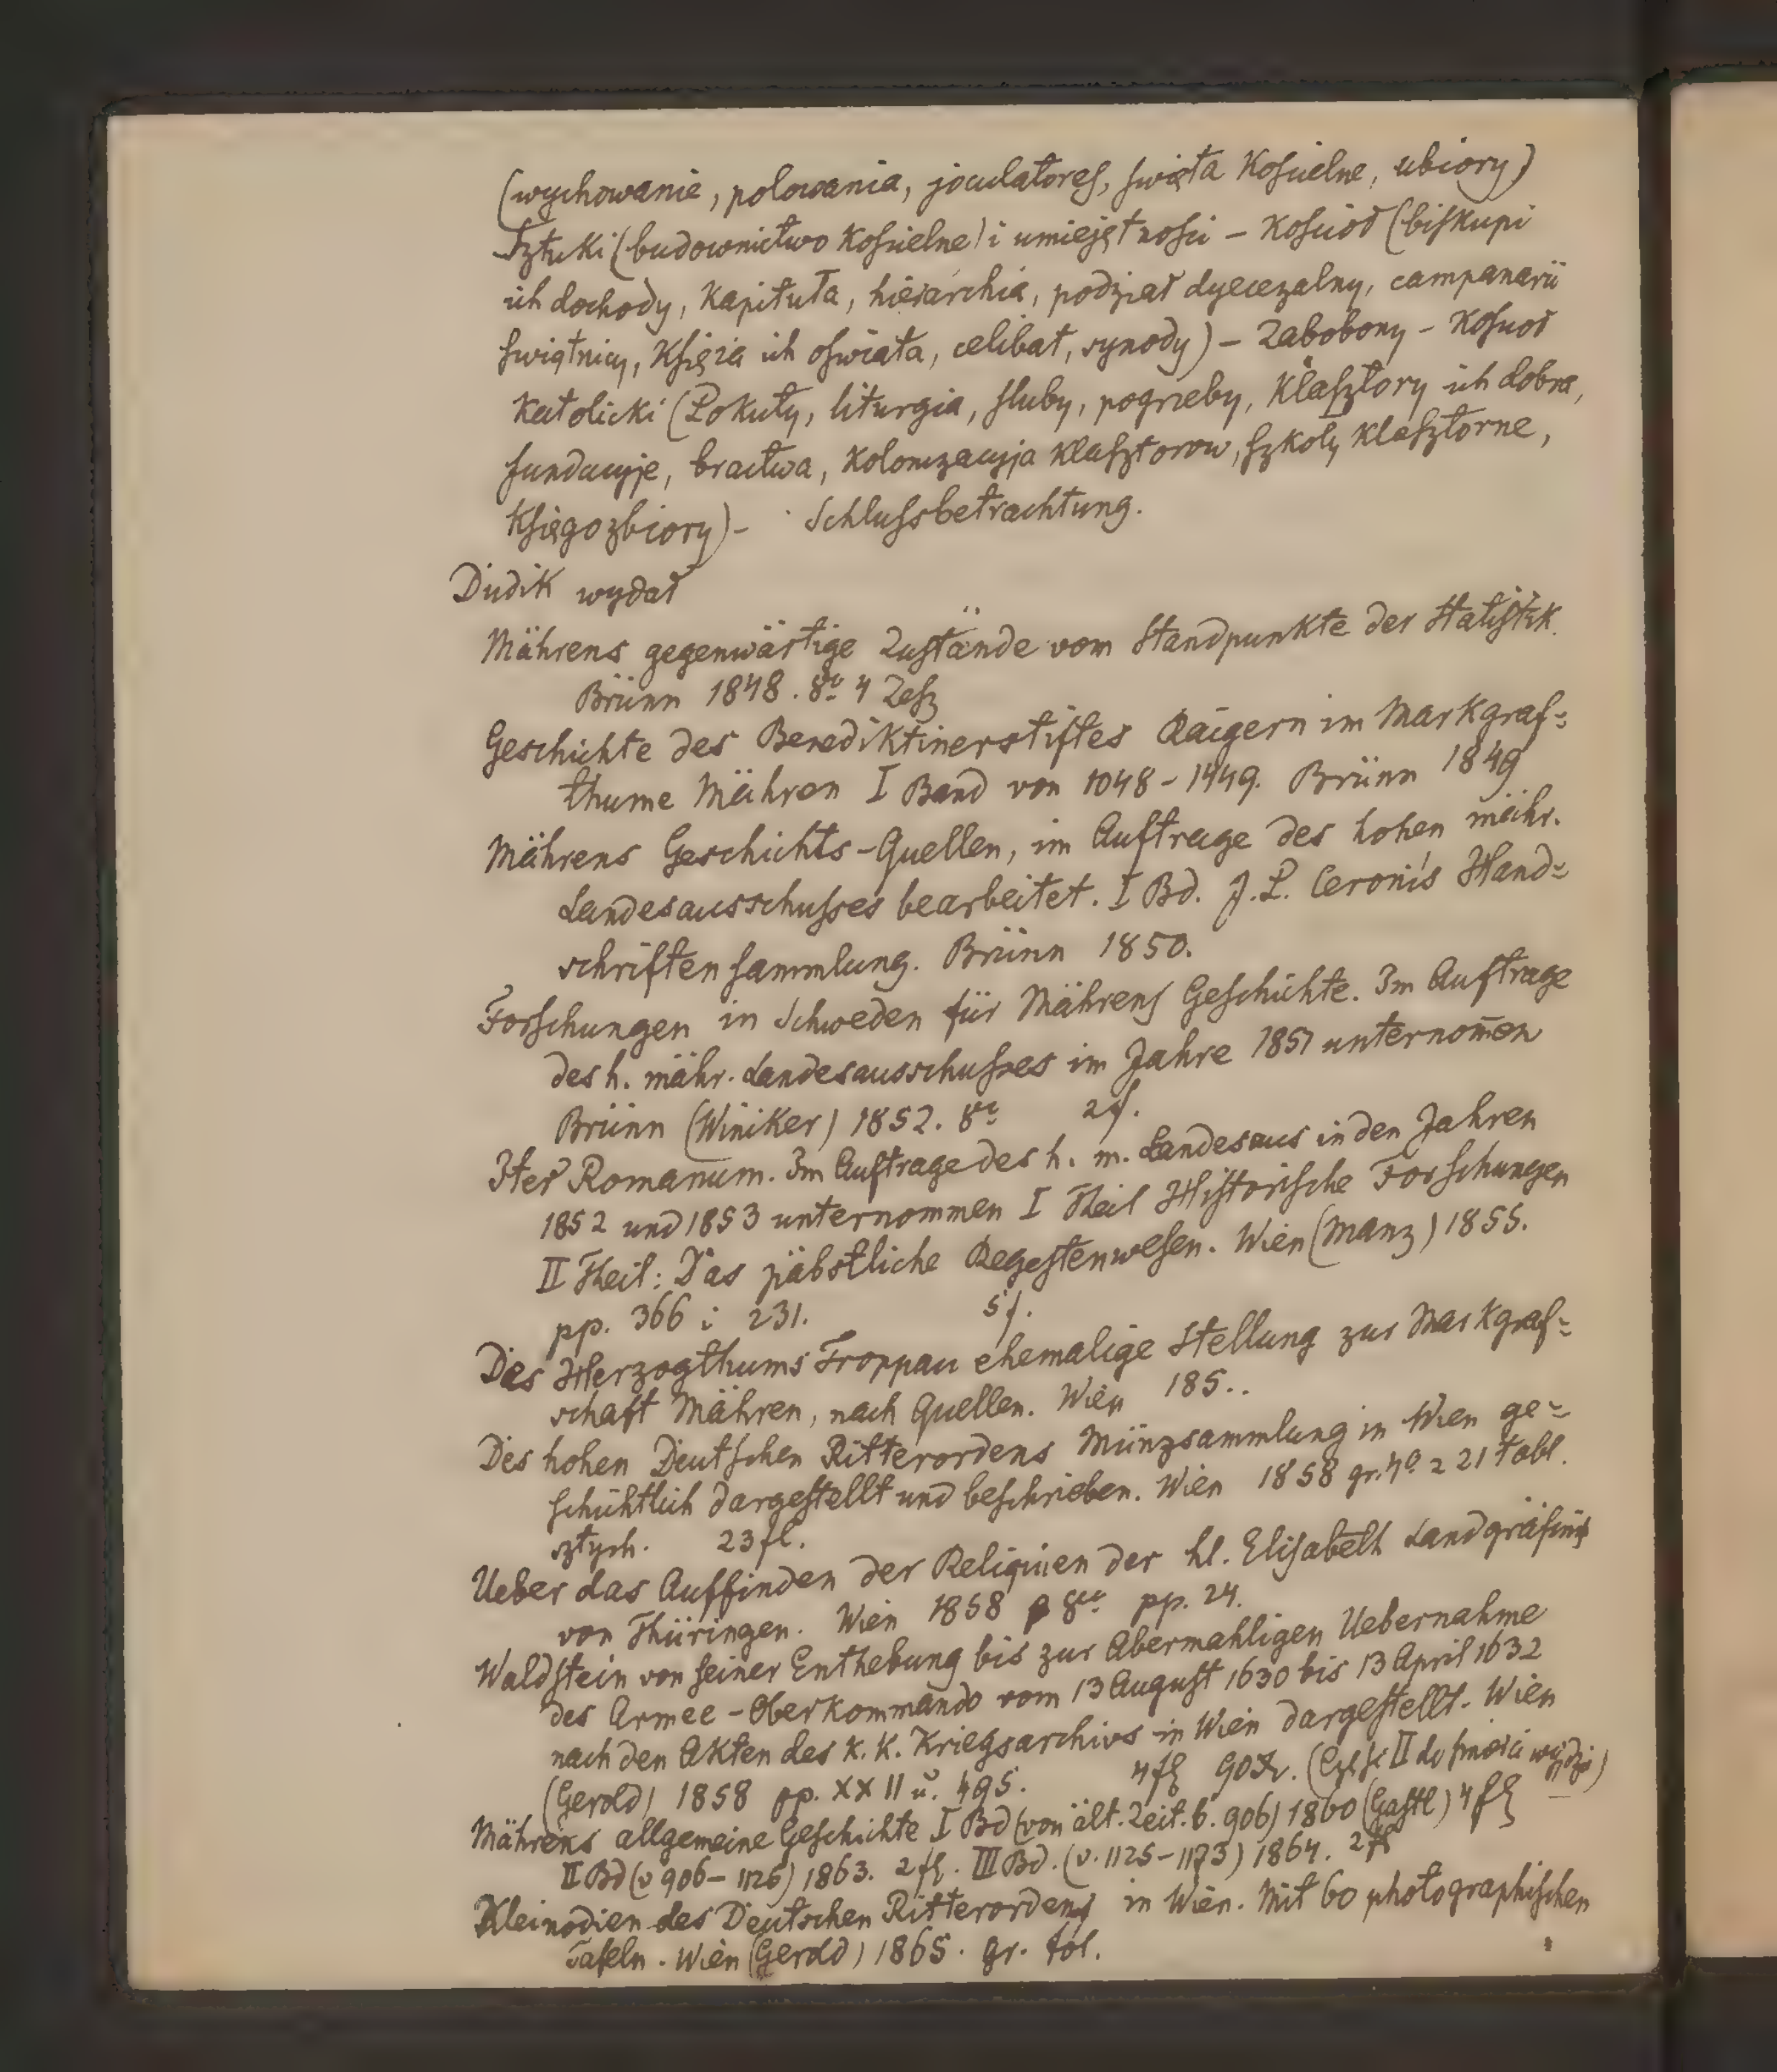 (wychowanie, polowania, joculatores, święta Kościelne, ubiory)
Sztuki (budownictwo Kościelne) i umiejętności – Kościoł (biskupi
ich dochody, Kapituła, hierarchia, podział dyecezalny, campanarii
swiątnicy, Księża ich oświata, celibat, synody) – Zabobony – Kościoł
Katolicki (Pokuty, liturgia, śluby, pogrzeby, Klasztory ich dobra,
fundacyje, bractwa, Kolonizacyja Klasztorow, szkoły Klasztorne,
Księgozbiory) – Schlussbetrachtung.
Dudik wydał
Mährens gegenwärtige Zustände vom Standpunkte der Statistik.
Brünn 1848. 8vo 4 Zesz
Geschichte des Benediktinerstiftes Raigern im Markgraf=
thume Mähren I Band von 1048–1449. Brünn 1849
Mährens Geschichts-Quellen, im Auftrage des hohen mähr.
Landesausschusses bearbeitet. I Bd. J. P. Ceroni's Hand=
schriftensammlung. Brünn 1850.
Forschungen in Schweden für Mährens Geschichte. Im Auftrage
des h. mähr. Landesausschusses im Jahre 1851 unternom̄en
Brünn (Winiker) 1852. 8vo 2 f.
Iter Romanum. Im Auftrage des h. m. Landesaus in den Jahren
1852 und 1853 unternommen I Theil Historische Forschungen
II Theil: Das päbstliche Regestenwesen. Wien (Manz) 1855.
pp. 366 i 231. 5 f.
Des Herzogthums Troppau ehemalige Stellung zur Markgraf=
schaft Mähren, nach Quellen. Wien 185..
Des hohen Deutschen Ritterordens Münzsammlung in Wien ge=
schichtlich dargestellt und beschrieben. Wien 1858 gr. 4o z 21 tabl.
sztych. 23 fl.
Ueber das Auffinden der Reliquien der hl. Elisabeth Landgräfin
von Thüringen. Wien 1858 8vo pp. 24.
Waldstein von seiner Enthebung bis zur Abermahligen Uebernahme
des Armee-Oberkommando vom 13 August 1630 bis 13 April 1632
nach den Akten des K. K. Kriegsarchivs in Wien dargestellt. Wien
(Gerold) 1858 pp. XXII u. 495. 4 fl 90 (Część II do śmierci wyjdzie)
Mährens allgemeine Geschichte I Bd (von ält. Zeit. b. 906) 1860 (Gastl) 4 fl
II Bd (v 906–1125) 1863. 2 fl. III Bd. (v. 1125–1173) 1864. 2 fl
Kleinodien des Deutschen Ritterordens in Wien. Mit 60 photographischen
Tafeln. Wien (Gerold) 1865. gr. fol.